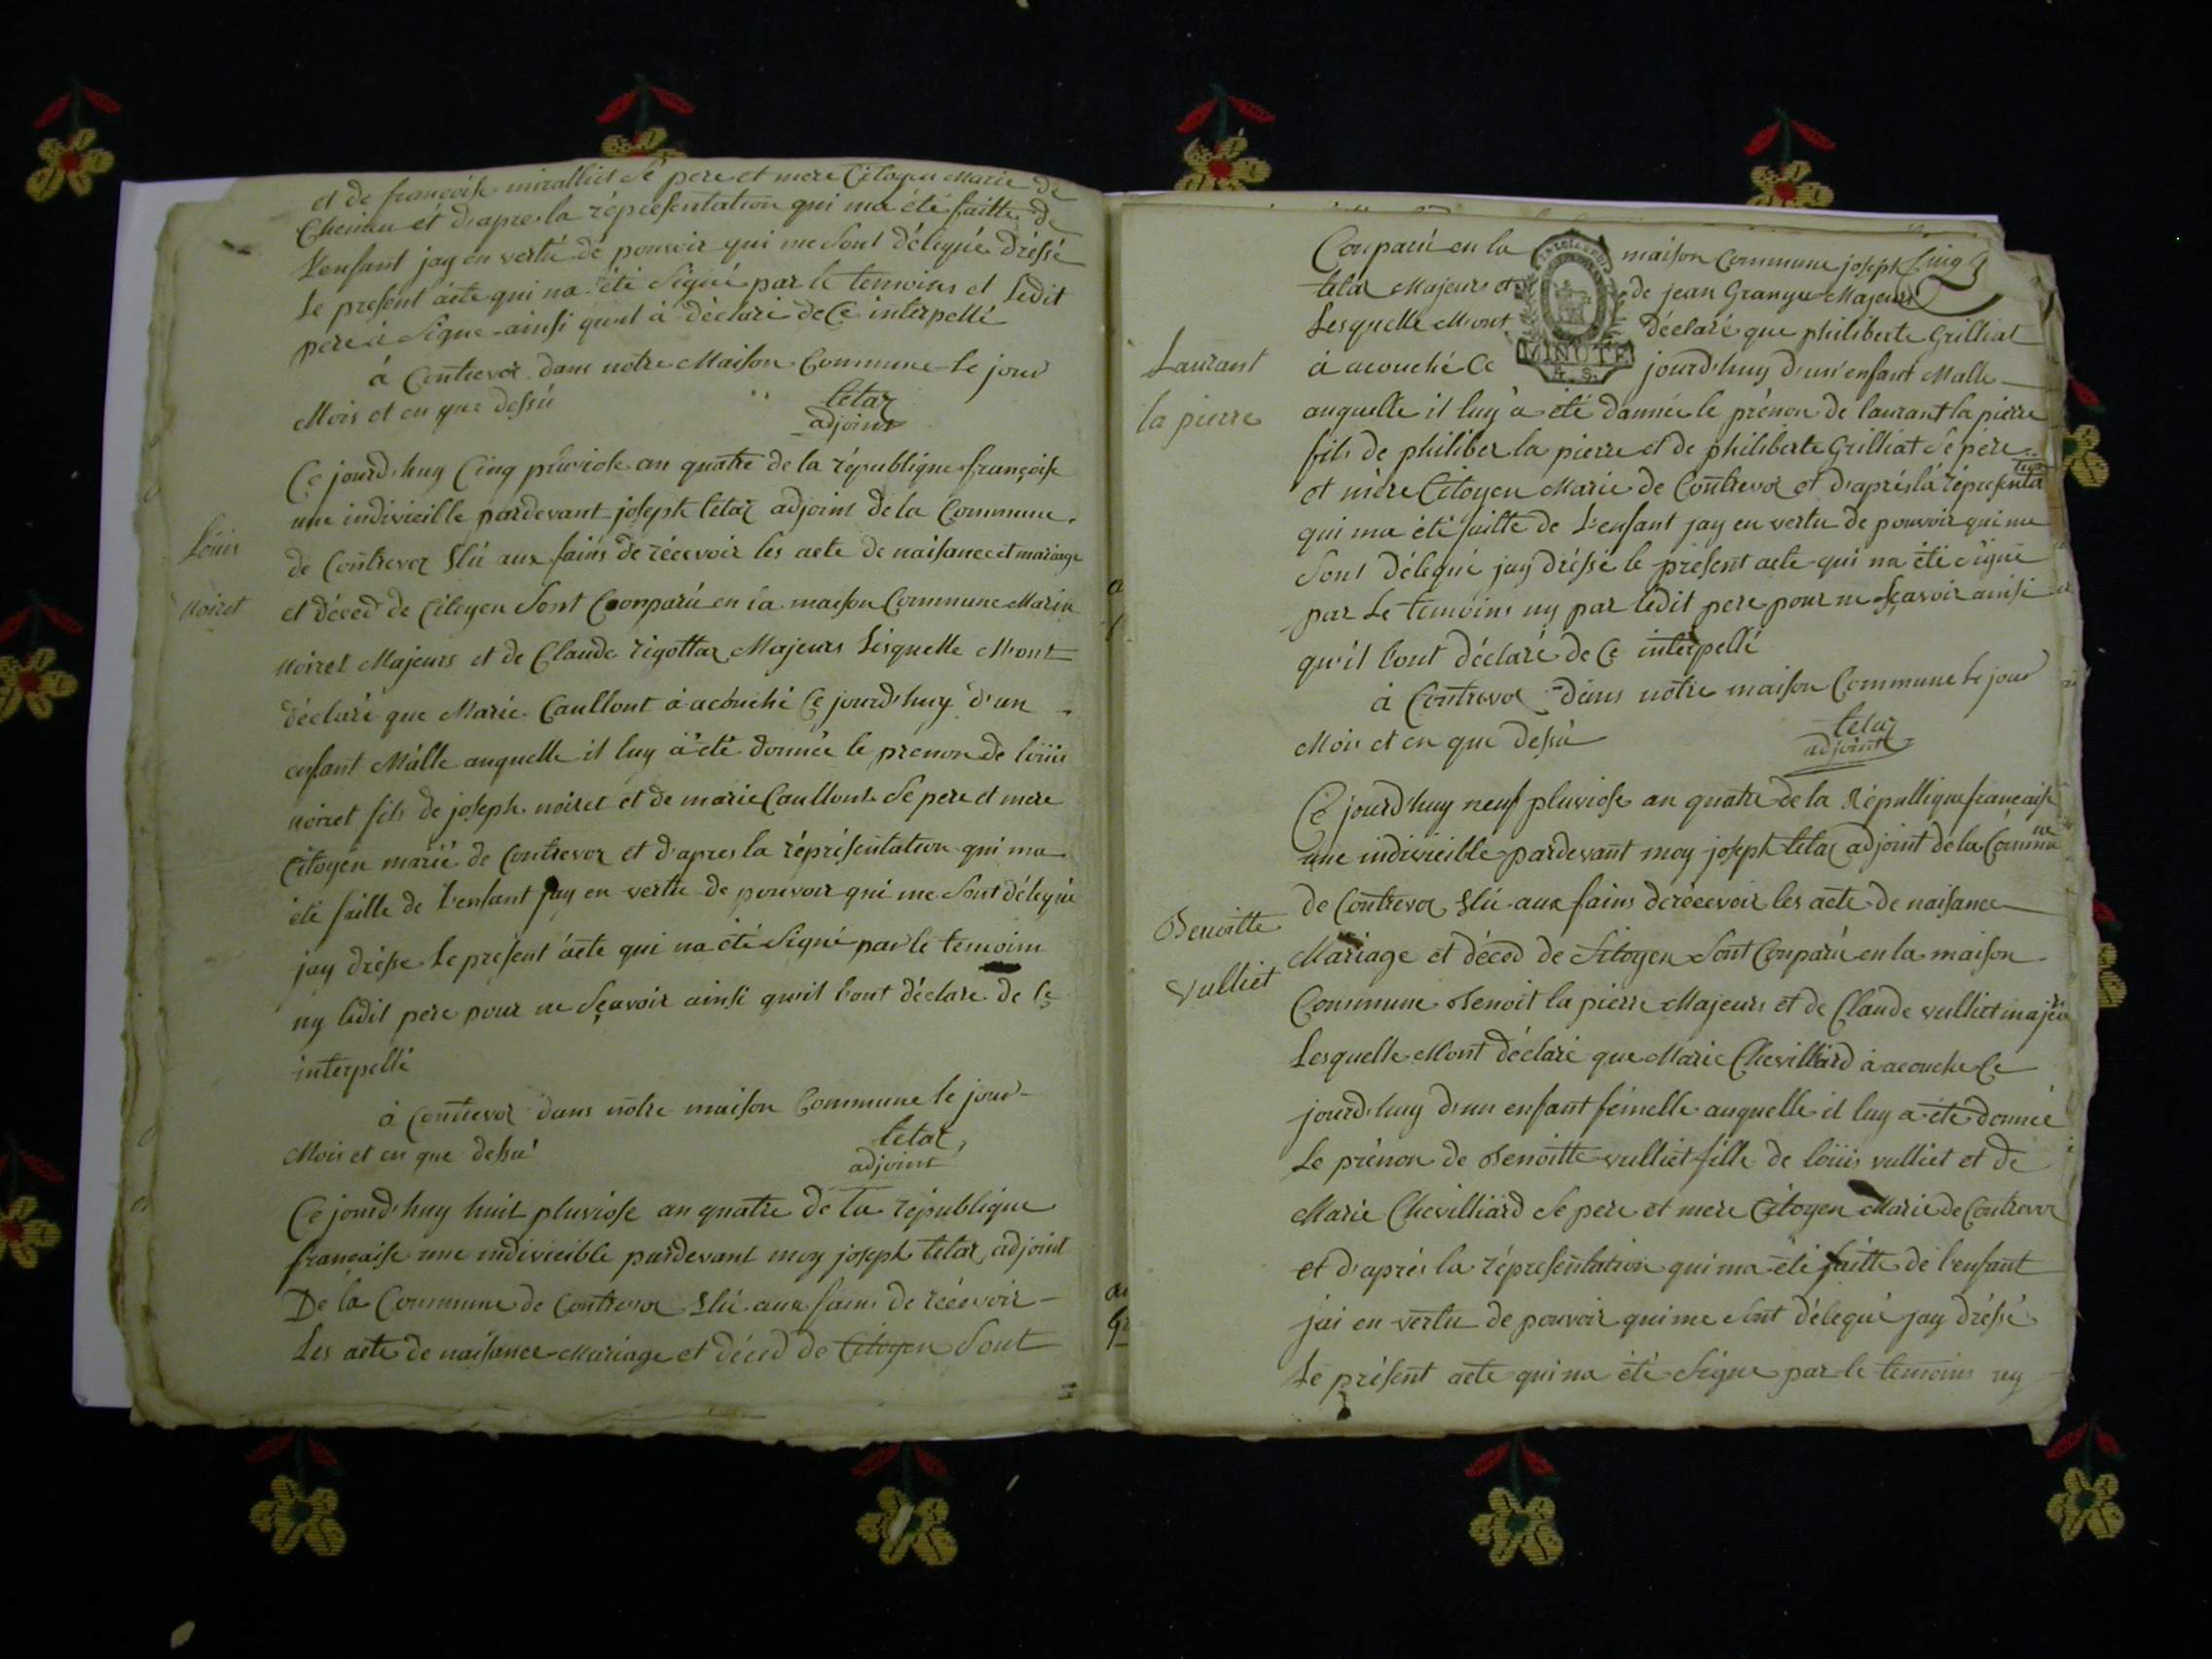 et de françoise miralliet Se pere et mere Citoyen Marie de
Cheinieu et d'apres la répresentation qui ma été faitte de
L'enfant jay en vertu de pouvoir qui me Sont délequé dréssé
Le present ácte qui na été Signé par le temoins et Ledit
pere à Signe ainsi quil à déclaré de Ce interpellé
à Contrevoz dans notre Maison Commune le jour
Mois et en que dessú
tetaz
adjoint
Louis
noiret
Ce jourd'huy Cinq pluviose an quatre de la république françoise
une indivicible pardevant joseph tetaz adjoint de la Commune
de Contrevoz Élú aux fains de récevoir les acte de naisance et mariage
et déced de Citoyen Sont Conparú en la maison Commune Marin
noiret Majeurs et de Claude rigottaz Majeurs Lesquelle M'ont
déclaré que Marie Caullont à acouché Ce jourd'huy d'un
enfant Málle auquelle il luy à été donnée le prénon de loüis
noiret fils de joseph noiret et de marie Caullont Se pere et mere
Citoyen marié de Contrevoz et d'apres la réprésentation qui ma
été faitte de l'enfant jay en vertu de pouvoir qui me Sont délequé
jay drésse Le present ácte qui na été Signé par le temoins
ny ledit pere pour ne Sçavoir ainsi qu'il l'ont déclare de Ce
interpellé
à Contrevoz dans nôtre maison Commune le jour
Mois et en que dessú
tetaz
adjoint
Ce jourd'huy huit pluviose an quatre de la république
francaise une indivicible pardevant moy joseph tetaz adjoint
De la Commune de Contrevoz Élú aux fains de récevoir
Les acte de naisance Mariage et déced de Citoyen Sont
Conparú en la maison Commune joseph
tetaz Majeurs et de jean Grangu Majeurs
Lesquelle M'ont déclaré que philiberte Grilliat
MINUTE
Laurant
la pierre
à acouché Ce jourd'huy d'un enfant Malle
auquelle il luy à été donnée le prénon de laurant la pierre
fils de philiber la pierre et de philiberte Grilliat Se pere
et mére Citoyen Marie de Contrevoz et d'aprés lá répresenta
tion
qui ma été faitte de L'enfant jay en vertu de pouvoir qui me
Sont délequé jay dréssé le présent acte qui na été Signe
par Le temoins ny par ledit pere pour ne Sçavoir ainsi
qu'il l'ont déclaré de Ce interpellé
à Contrevoz dans nôtre maison Commune le jour
Mois et en que dessú
tetaz
adjoint
Benoitte
Vulliet
Ce jourd'huy neuf pluviose an quatre de la République francaise
une indivicible pardevant moy joseph tetaz adjoint de la Commu
ne
de Contrevoz Élú aux fains de récevoir les acte de naisance
Mariage et déced de Sitoyen Sont Conparú en la maison
Commune Benoit la pierre Majeurs et de Claude vulliet majeu
rs
Lesquelle M'ont déclaré que Marie Chevilliard à acouche Ce
jourd'huy d'un enfant fémelle auquelle il luy a été donnée
Le prénon de Benoitte vulliet fille de loüis vulliet et de
Marie Chevilliard Se pere et mere Citoyen Marie de Contrevoz
et d'aprés la répresentation qui ma été faitte de l'enfant
jai en vertu de pouvoir qui me Sont délequé jay dréssé
Le présent acte qui na été Signe par le temoins ny